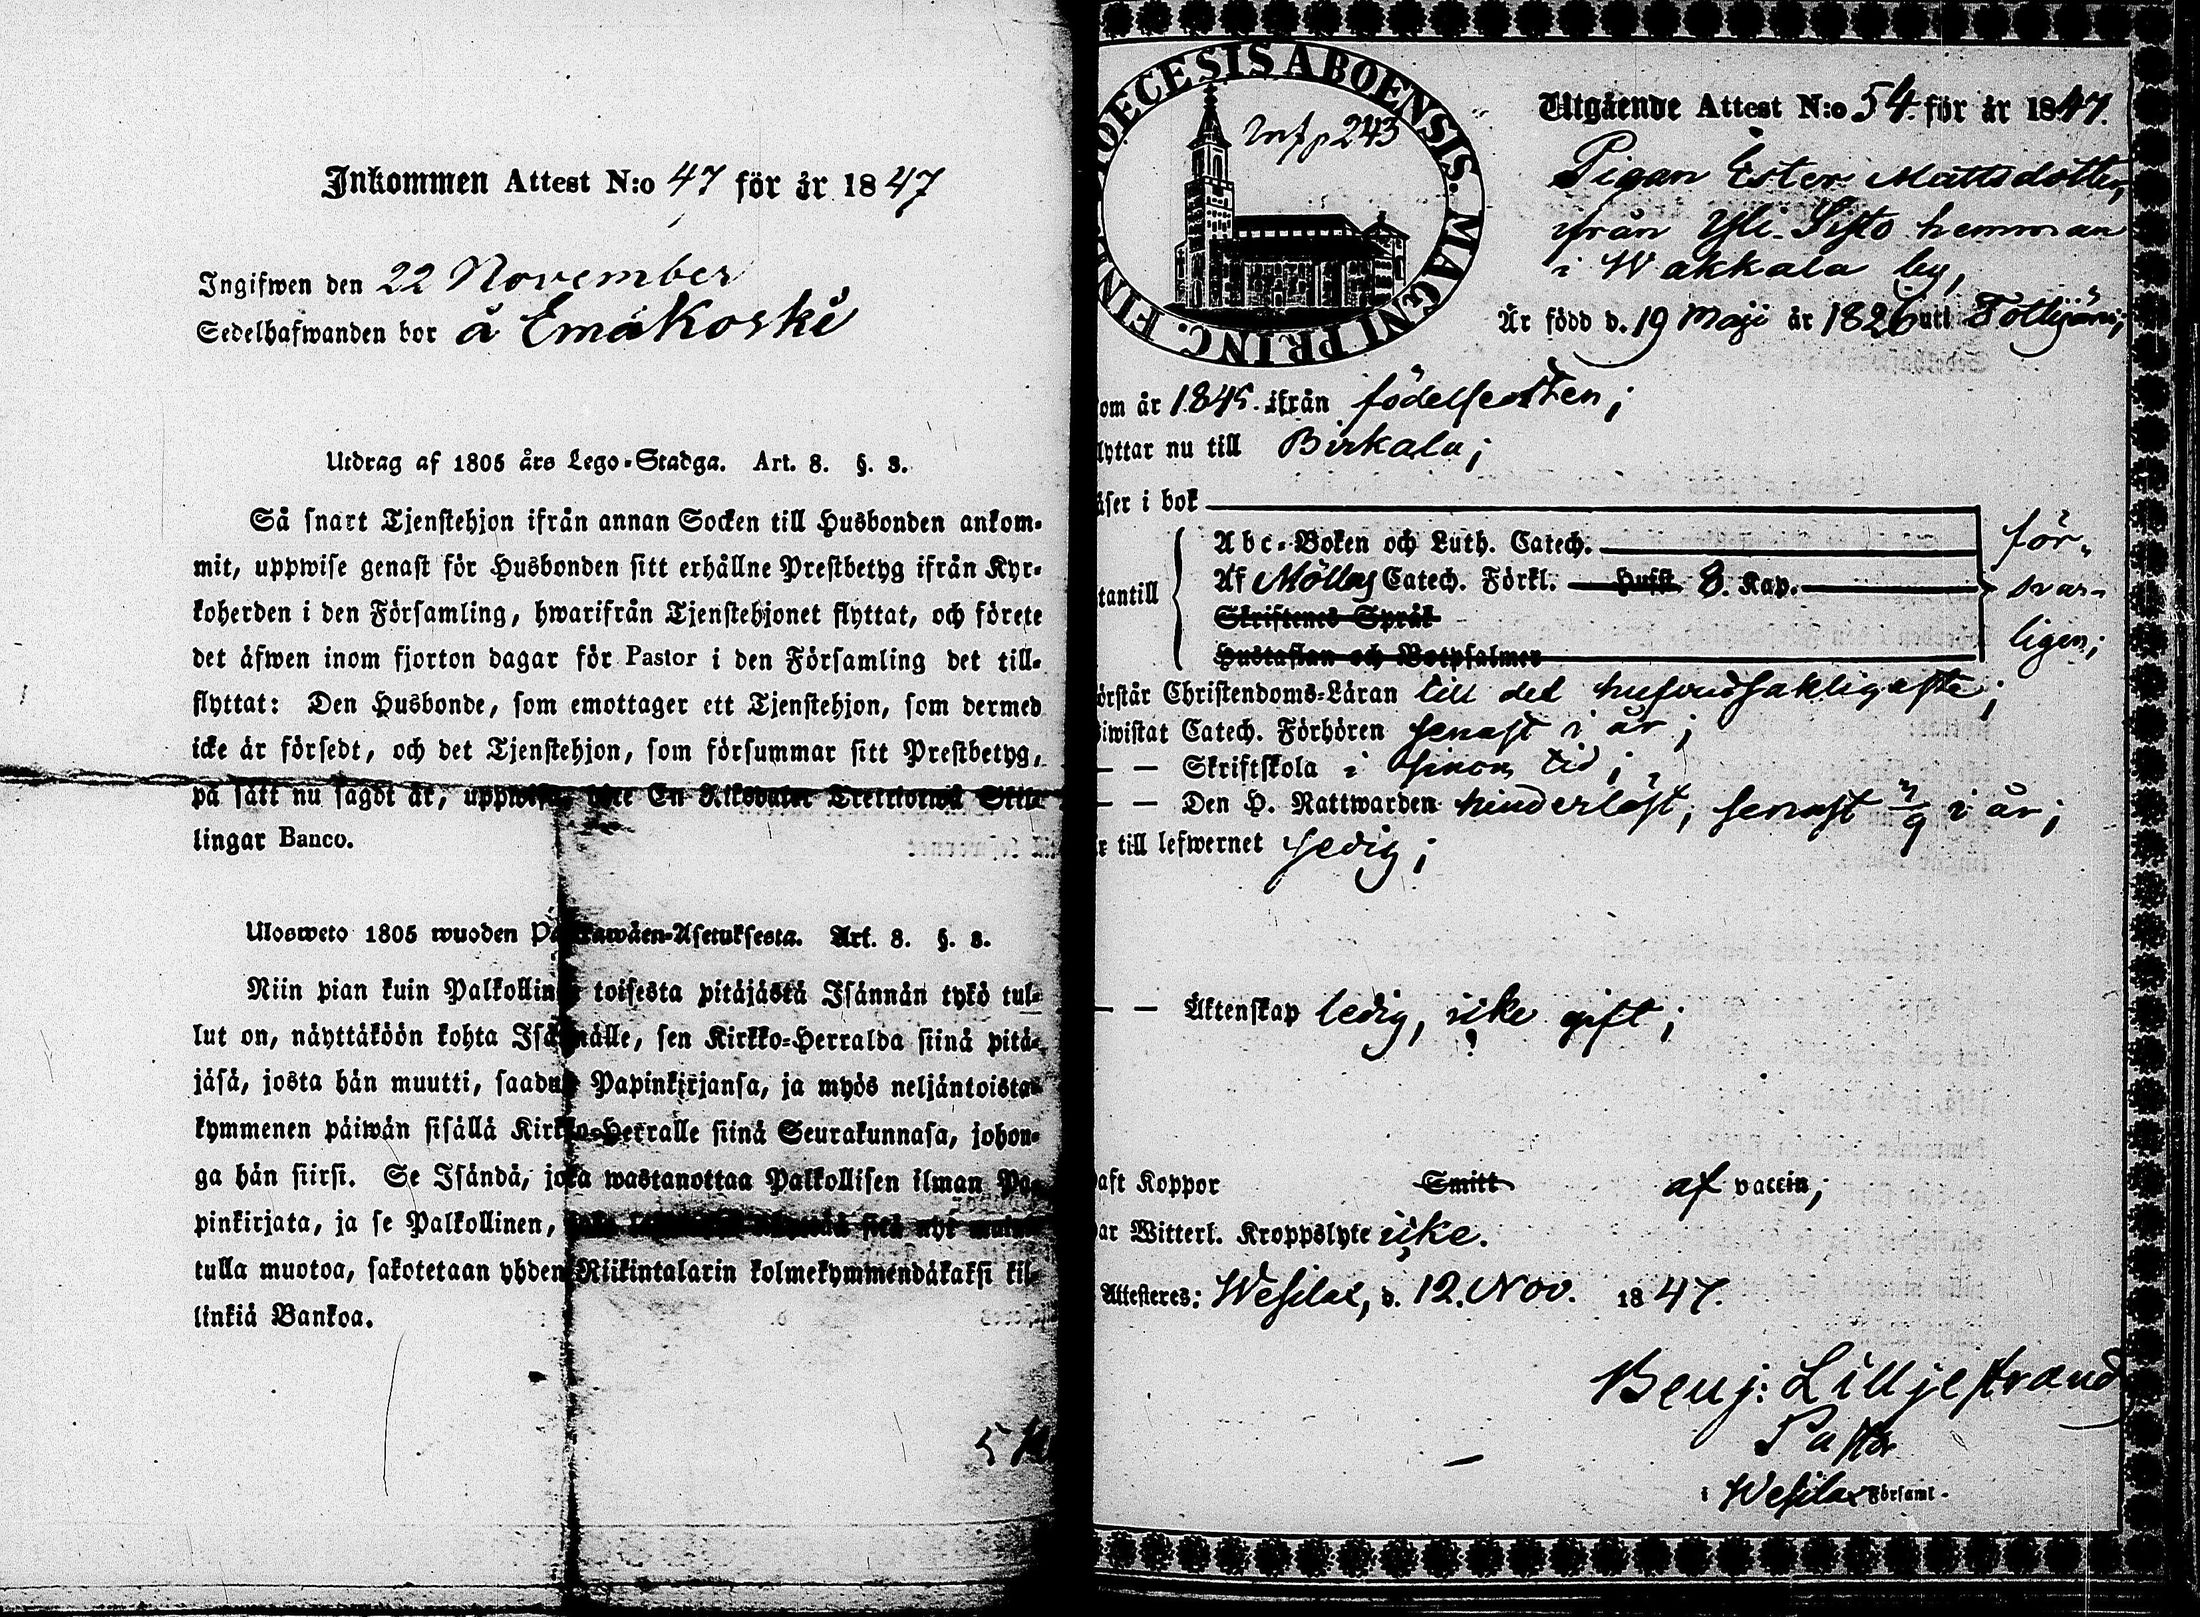 Inkommen Attest N:o 47 för år 1847
Ingifwen den 22 November
Sedelhafwanden bor å Emäkoski
Utdrag af 1805 års Lego-Stadga. Art. 8. §. 3.
Så snart Tjenstehjon ifrån annan Socken till Husbonden ankom-
mit, uppwise genast för Husbonden sitt erhållne Prestbetyg ifrån Kyr-
koherden i den Församling, hwarifrån Tjenstehjonet flyttat, och förete
det äfwen inom fjorton dagar för Pastor i den Församling det till-
flyttat: Den Husbonde, som emottager ett Tjenstehjon, som dermed
icke är försedt, och det Tjenstehjon, som försummar sitt Prestbetyg,
på sätt nu sagdt är, En Riksdaler
lingar Banco.
Ulosweto 1805 wuoden Asetuksesta. Art. 8. §. 3.
Niin pian kuin Palkollinen toisesta pitäjästä Isännän tykö tul-
lut on, näyttäköön kohta Isännälle, sen Kirkko-Herralda siinä pitä-
jäsä, josta hän muutti, saadun Papinkirjansa, ja myös neljäntoista-
kymmenen päiwän sisällä Kirkko-Herralle siinä Seurakunnasa, johon-
ga hän siirsi. Se Isändä, joka wastanottaa Palkollisen ilman Pa-
pinkirjata, ja se Palkollinen, sitä nyt
tulla muotoa, sakotetaan yhden Riikintalarin kolmekymmendäkaksi kil-
linkiä Bankoa.
DIOECESIS ABOENSIS. MAGNI PRINC. FIN
Inf p 243
Utgående Attest N:o 54. för år 1847.
Pigan Ester Mattsdotter,
ifrån Yli-Sisto hemman
i Wakkala by,
Är född d. 19 Maji år 1826 uti Tottijärvi;
om år 1845. ifrån födelseorten;
lyttar nu till Birkala;
äser i bok
Abc-Boken och Luth. Catech. för-
tantill Af Möllers Catech. Förkl. Hufst. 8. Kap. svar-
Skriftenes Språk
Hustaflan och Botpsalmer ligen;
örstår Christendoms-Läran till det hufvudsakligaste;
iwistat Catech. Förhören senast i år;
— — Skriftskola i sinom tid;
— — Den H. Nattwarden hinderlöst, senast i år;
r till lefwernet sedig;
— — Äktenskap ledig, icke gift;
aft Koppor Smitt af vaccin;
ar Witterl. Kroppslyte icke.
Attesteres: Wesilax, d. 12. Nov. 1847.
Benj: Lilljestrand
Pastor
i Wesilax Församl.